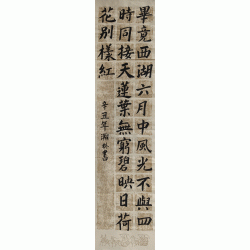 畢竟西湖六月中風光不與四
時同接天蓮葉無窮碧映日荷
花別樣紅
辛丑年